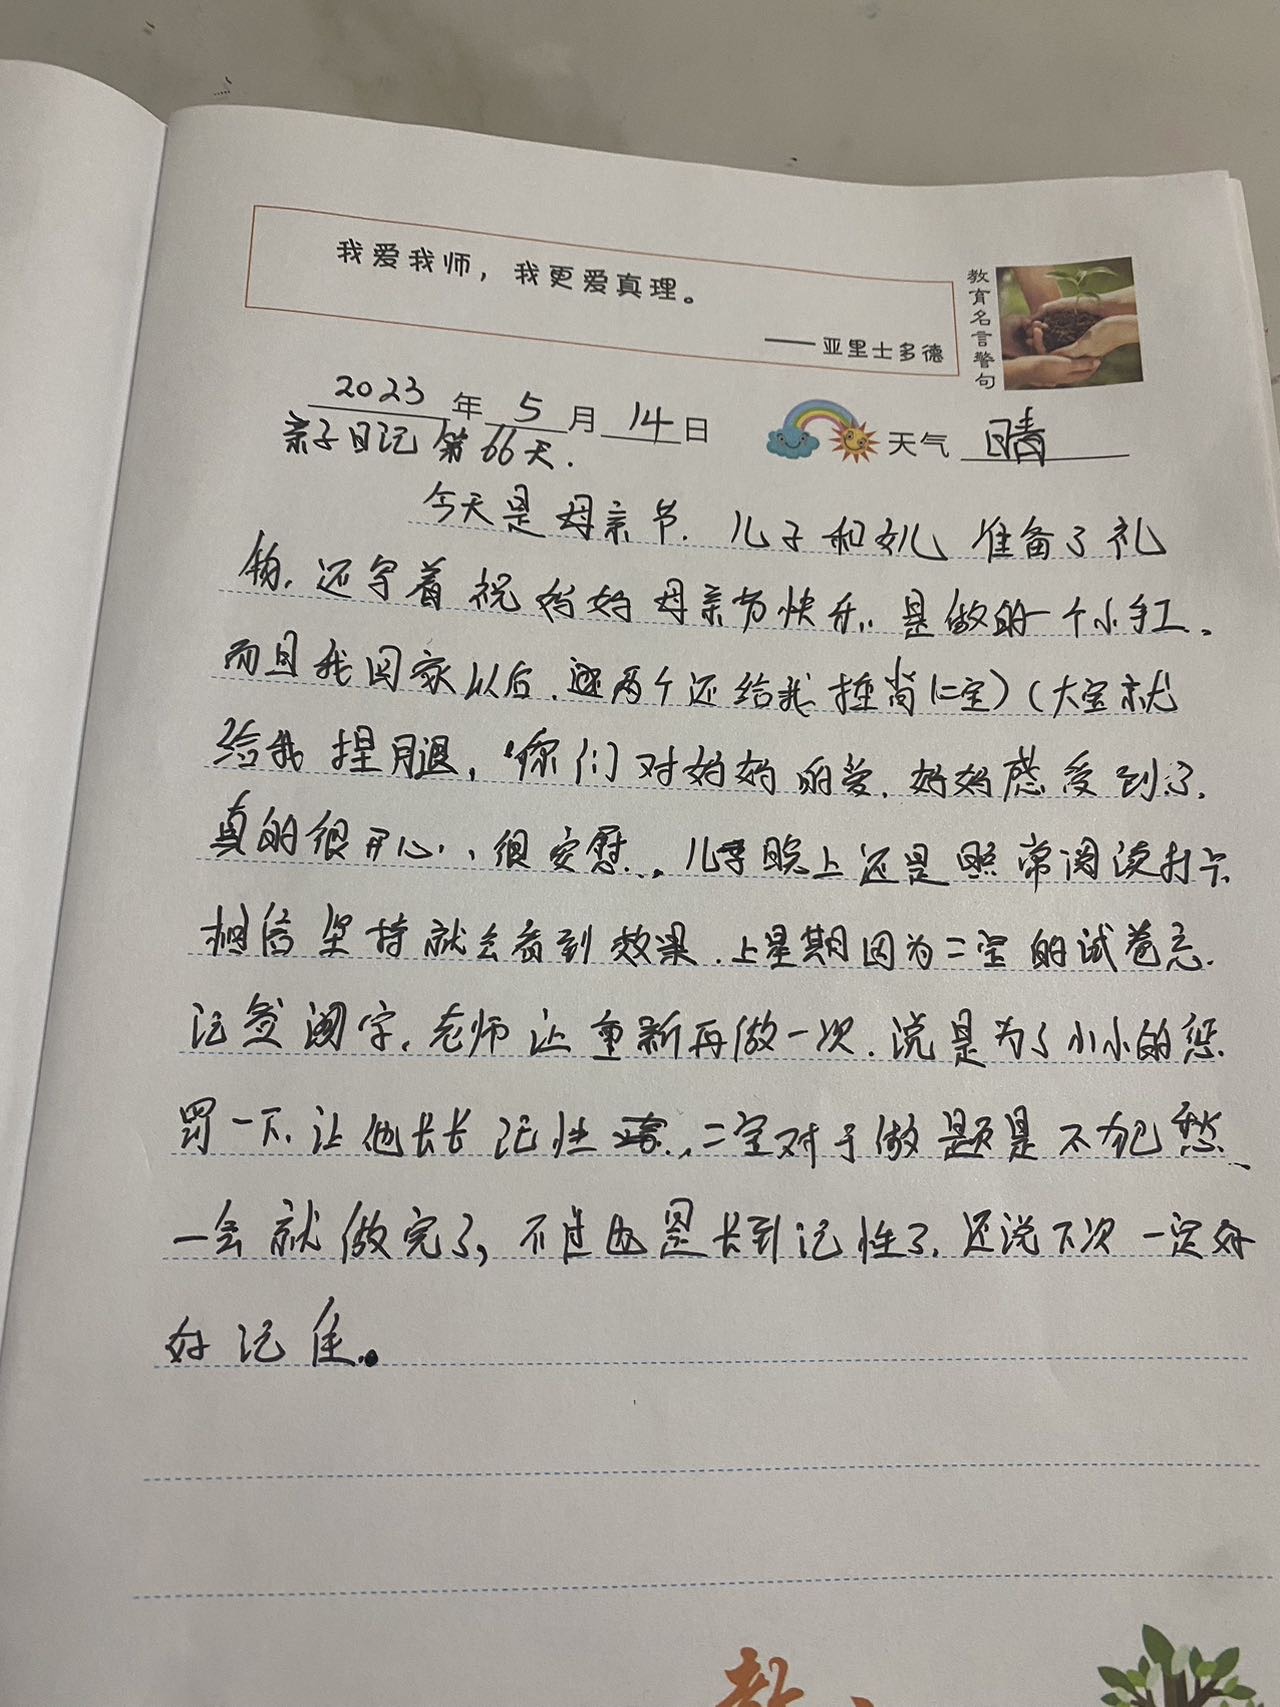 我爱我师，我更爱真理。
——亚里士多德
教育名言警句
2023年5月14日
天气 晴
亲子日记第66天.
今天是母亲节.儿子和女儿准备了礼
物.还写着祝妈妈母亲节快乐.是做的一个小手工.
而且我回家以后.两个还给我捶背(二宝)(大宝就
给我捏腿,你们对妈妈的爱.妈妈感受到了.
真的很开心,很安慰.儿子晚上还是照常阅读打卡
相信坚持就会看到效果.上星期因为二宝的试卷忘
记签阅字.老师让重新再做一次.说是为了小小的惩
罚一下.让他长长记性.二宝对于做题是不犯愁
一会就做完了,不过也是长到记性了.还说下次一定好
好记住。